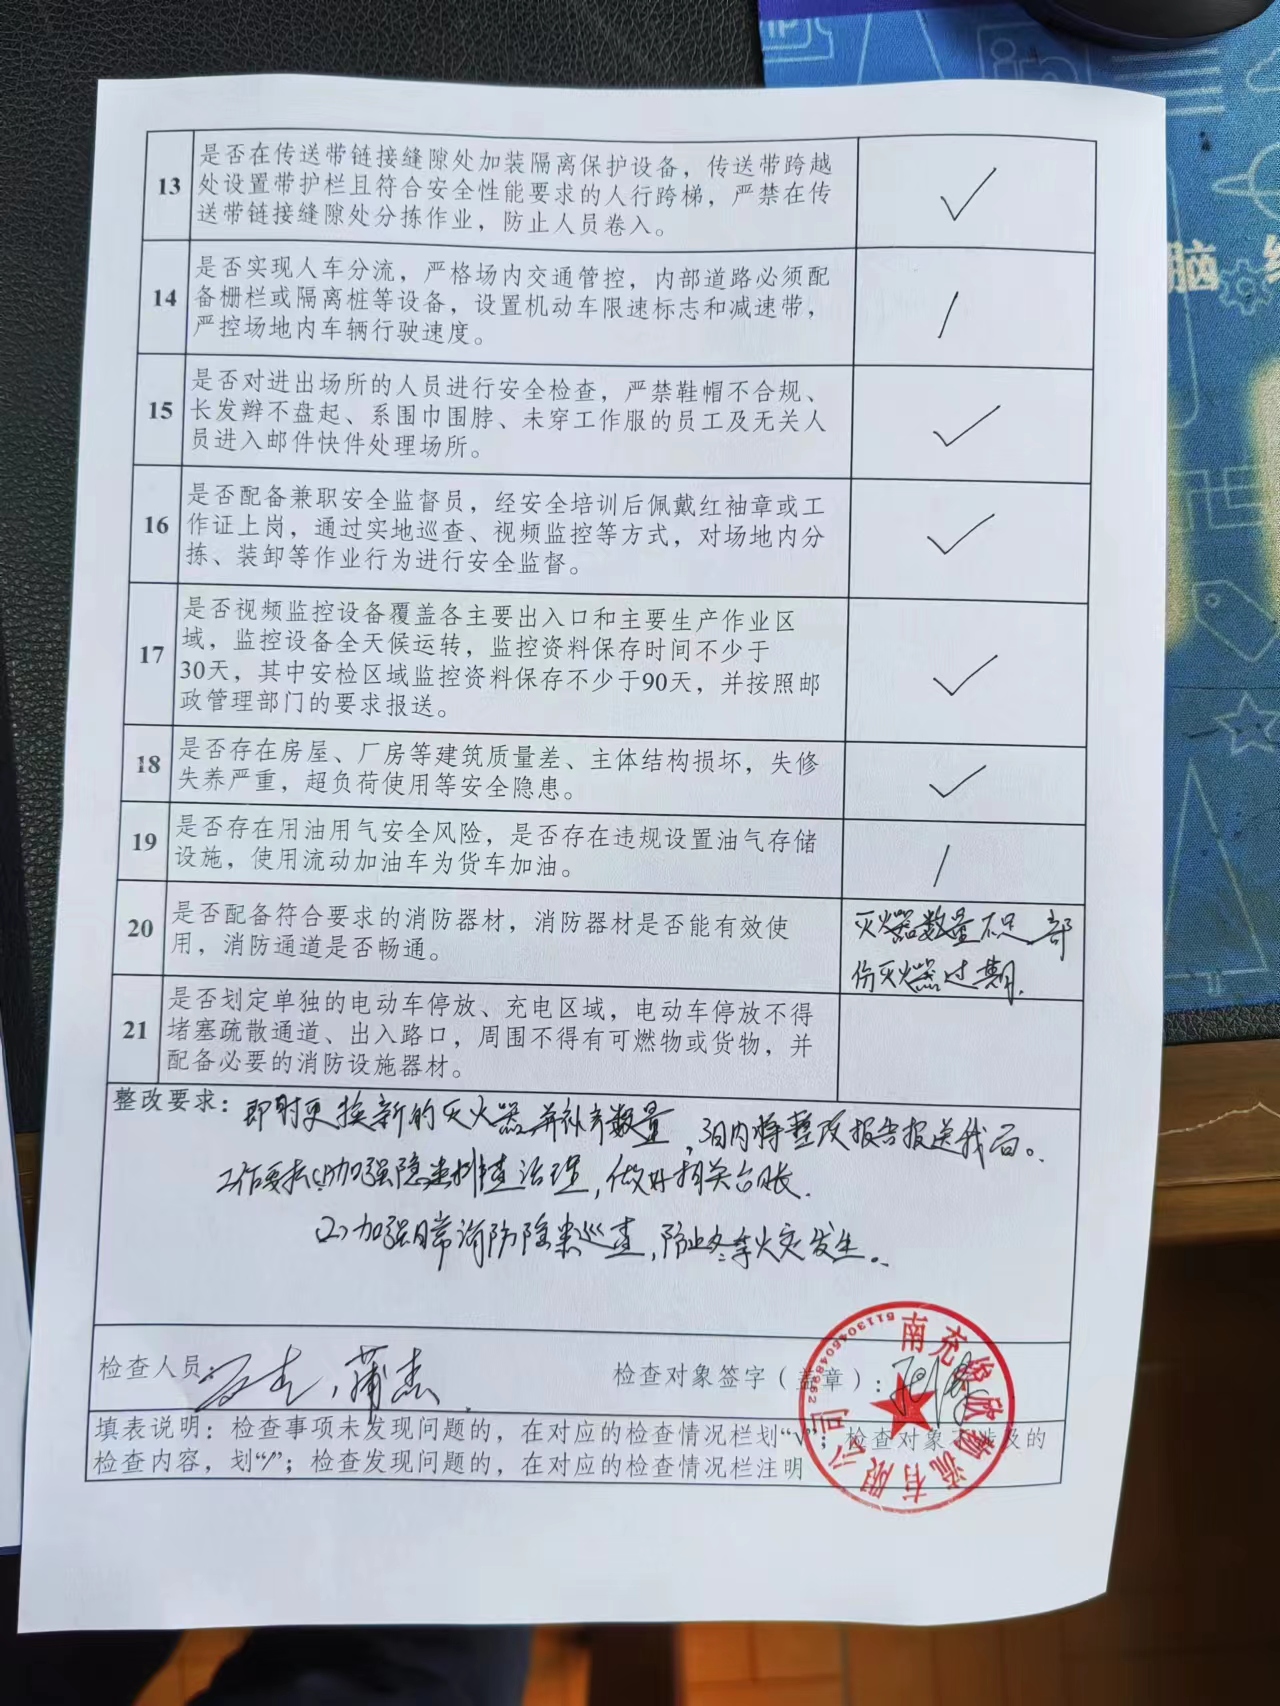 13
是否在传送带链接缝隙处加装隔离保护设备，传送带跨越
处设置带护栏且符合安全性能要求的人行跨梯，严禁在传
送带链接缝隙处分拣作业，防止人员卷入。
√
14
是否实现人车分流，严格场内交通管控，内部道路必须配
备栅栏或隔离桩等设备，设置机动车限速标志和减速带，
严控场地内车辆行驶速度。
/
15
是否对进出场所的人员进行安全检查，严禁鞋帽不合规、
长发辫不盘起、系围巾围脖、未穿工作服的员工及无关人
员进入邮件快件处理场所。
√
16
是否配备兼职安全监督员，经安全培训后佩戴红袖章或工
作证上岗，通过实地巡查、视频监控等方式，对场地内分
拣、装卸等作业行为进行安全监督。
√
17
是否视频监控设备覆盖各主要出入口和主要生产作业区
域，监控设备全天候运转，监控资料保存时间不少于
30天，其中安检区域监控资料保存不少于90天，并按照邮
政管理部门的要求报送。
√
18
是否存在房屋、厂房等建筑质量差、主体结构损坏，失修
失养严重，超负荷使用等安全隐患。
√
19
是否存在用油用气安全风险，是否存在违规设置油气存储
设施，使用流动加油车为货车加油。
/
20
是否配备符合要求的消防器材，消防器材是否能有效使
用，消防通道是否畅通。
灭火器数量不足，部
份灭火器过期.
21
是否划定单独的电动车停放、充电区域，电动车停放不得
堵塞疏散通道、出入路口，周围不得有可燃物或货物，并
配备必要的消防设施器材。
整改要求：即时更换新的灭火器并补齐数量，3日内将整改报告报送我局。
工作要求(1)加强隐患排查治理，做好相关台账.
(2)加强日常消防隐患巡查，防止冬季火灾发生。
检查人员： 蒲杰
检查对象签字（盖章）：
南充 欣物流有限公司
填表说明：检查事项未发现问题的，在对应的检查情况栏划“√”；检查对象不涉及的
检查内容，划“/”；检查发现问题的，在对应的检查情况栏注明
脑